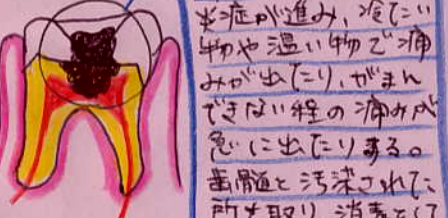 炎症が進み、冷たい
物や温い物で痛
みが出たり、がまん
できない程の痛みが
急に出たりする。
歯髄と汚染された
所を取り、消毒して